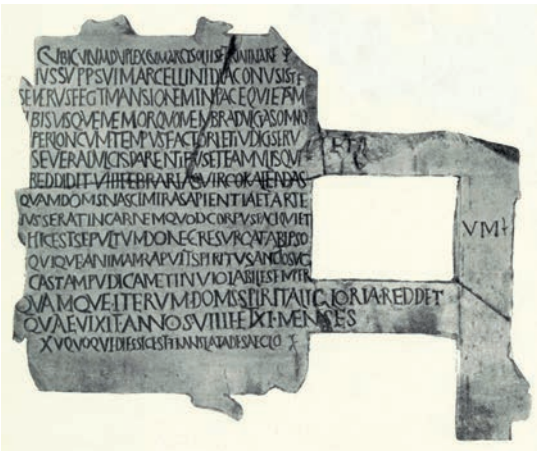 CVBICVLVM DVPLEX CVM ARCISOLIIS ET LVMINARE
IVSSV PP SVI MARCELLINVS DIACONVS ISTE
SEVERVS FECIT MANSIONEM IN PACE QVIETAM
BI SVISQVE MEMOR QVO MEMBRA DVLCIA SOMNO
PER LONGVM TEMPVS FACTORI ET IVDICI SERV
SEVERA DVLCIS PARENTIBVS ET FAMVLISQVE
REDDIDIT VIII FEBRARIAS VIRGO KALENDAS
QVAM DOMS NASCI MIRA SAPIENTIA ET ARTE
IVSSERAT IN CARNEM QVOD CORPVS PACE QVIET VM
HIC EST SEPVLTVM DONEC RESVRGAT AB IPSO
QVIQVE ANIMAM RAPVIT SPIRITV SANCTO SVO
CASTAM PVDICAM ET INVIOLABILE SEMPER
QVAMQVE ITERVM DOMS SPIRITALI GLORIA REDDET
QVAE VIXIT ANNOS VIIII ET XI MENSES
XV QVOQVE DIES SIC EST TRANSLATA DE SAECLO